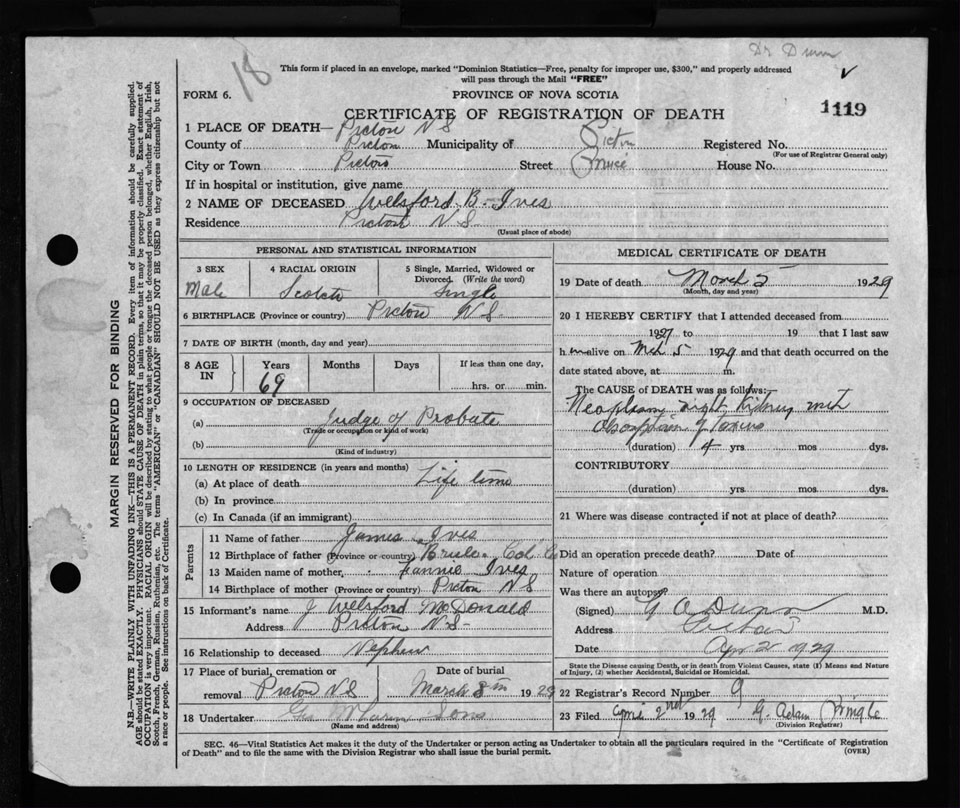 Dr Dunn
18
This form if placed in an envelope, marked "Dominion Statistics—Free, penalty for improper use, $300," and properly addressed
will pass through the Mail "FREE"
FORM 6.
PROVINCE OF NOVA SCOTIA
CERTIFICATE OF REGISTRATION OF DEATH
1119
1 PLACE OF DEATH— Pictou N S
County of Pictou Municipality of Pictou Registered No.
(For use of Registrar General only)
City or Town Pictou Street House No.
If in hospital or institution, give name
2 NAME OF DECEASED Welsford B. Ives
Residence Pictou N S
(Usual place of abode)
PERSONAL AND STATISTICAL INFORMATION
3 SEX 4 RACIAL ORIGIN 5 Single, Married, Widowed or
Divorced. (Write the word)
Male Scotch Single
6 BIRTHPLACE (Province or country) Pictou N.S.
7 DATE OF BIRTH (month, day and year)
8 AGE IN Years Months Days If less than one day,
69 hrs. or min.
9 OCCUPATION OF DECEASED
(a) Judge of Probate
(Trade or occupation or kind of work)
(b)
(Kind of industry)
10 LENGTH OF RESIDENCE (in years and months)
(a) At place of death Life time
(b) In province
(c) In Canada (if an immigrant)
Parents
11 Name of father James Ives
12 Birthplace of father (Province or country) Brule. Col Co
13 Maiden name of mother, Fannie Ives
14 Birthplace of mother (Province or country) Pictou N S
15 Informant's name J Welsford McDonald
Address Pictou N.S-
16 Relationship to deceased Nephew
17 Place of burial, cremation or Date of burial
removal Pictou N S March 8th 1929
18 Undertaker Sons
(Name and address)
MEDICAL CERTIFICATE OF DEATH
19 Date of death March 5 1929
(Month, day and year)
20 I HEREBY CERTIFY that I attended deceased from
1927 to 19 that I last saw
him alive on Mch 5 1929 and that death occurred on the
date stated above, at m.
The CAUSE of DEATH was as follows:—
Neoplasm right Kidney with
absorption of toxins
(duration) 4 yrs mos dys.
CONTRIBUTORY
(duration) yrs mos dys.
21 Where was disease contracted if not at place of death?
Did an operation precede death? Date of
Nature of operation
Was there an autopsy?
(Signed) Dunn M.D.
Address Pictou
Date Apr 2 1929
State the Disease causing Death, or in death from Violent Causes, state (1) Means and Nature
of Injury, (2) whether Accidental, Suicidal or Homicidal.
22 Registrar's Record Number 9
23 Filed April 2nd 1929 G. Adam Pringle
(Division Registrar)
SEC. 46—Vital Statistics Act makes it the duty of the Undertaker or person acting as Undertaker to obtain all the particulars required in the "Certificate of Registration
of Death" and to file the same with the Division Registrar who shall issue the burial permit.
(OVER)
MARGIN RESERVED FOR BINDING
N.B. WRITE PLAINLY WITH UNFADING INK—THIS IS A PERMANENT RECORD. Every item of information should be carefully supplied.
AGE should be stated EXACTLY. PHYSICIANS should STATE CAUSE OF DEATH in plain terms, so that it may be properly classified. Exact statement of
OCCUPATION is very important. RACIAL ORIGIN will be described by stating to what people or tongue the deceased person belonged, whether English, Irish,
Scotch, French, German, Russian, Ruthenian, etc. The terms "AMERICAN" or "CANADIAN" SHOULD NOT BE USED as they express citizenship but not
a race or people. See instructions on back of Certificate.